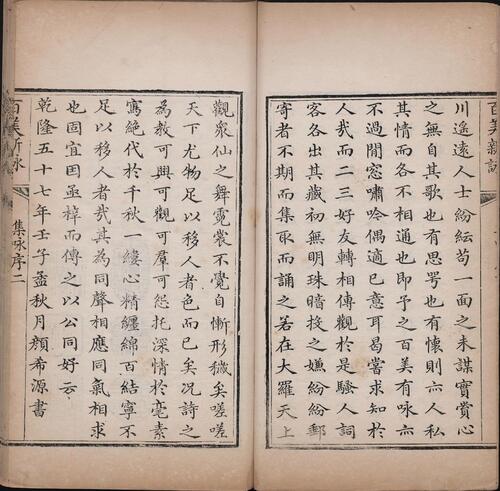 川遙遠人士紛紜苟一面之未謀實賞心
之無自其歌也有思咢也有懷則六人私
其情而各不相通也即予之百美有咏亦
不過閒窓嘯唫偶適己意耳曷嘗求知於
人哉而二三好友轉相傳觀於是騷人詞
客各出其藏初無明珠暗投之嫌紛紛郵
寄者不期而集取而誦之若在大羅天上
觀衆仙之舞霓裳不覺自慚形穢矣嗟嗟
天下尤物足以移人者色而已矣况詩之
為教可興可觀可羣可怨托深情於毫素
寫絶代於千秋一縷心精纏綿百結寧不
足以移人者哉其為同聲相應同氣相求
也固宜因亟梓而傳之以公同好云
乾隆五十七年壬子孟秋月顔希源書
百美新咏
集咏序二